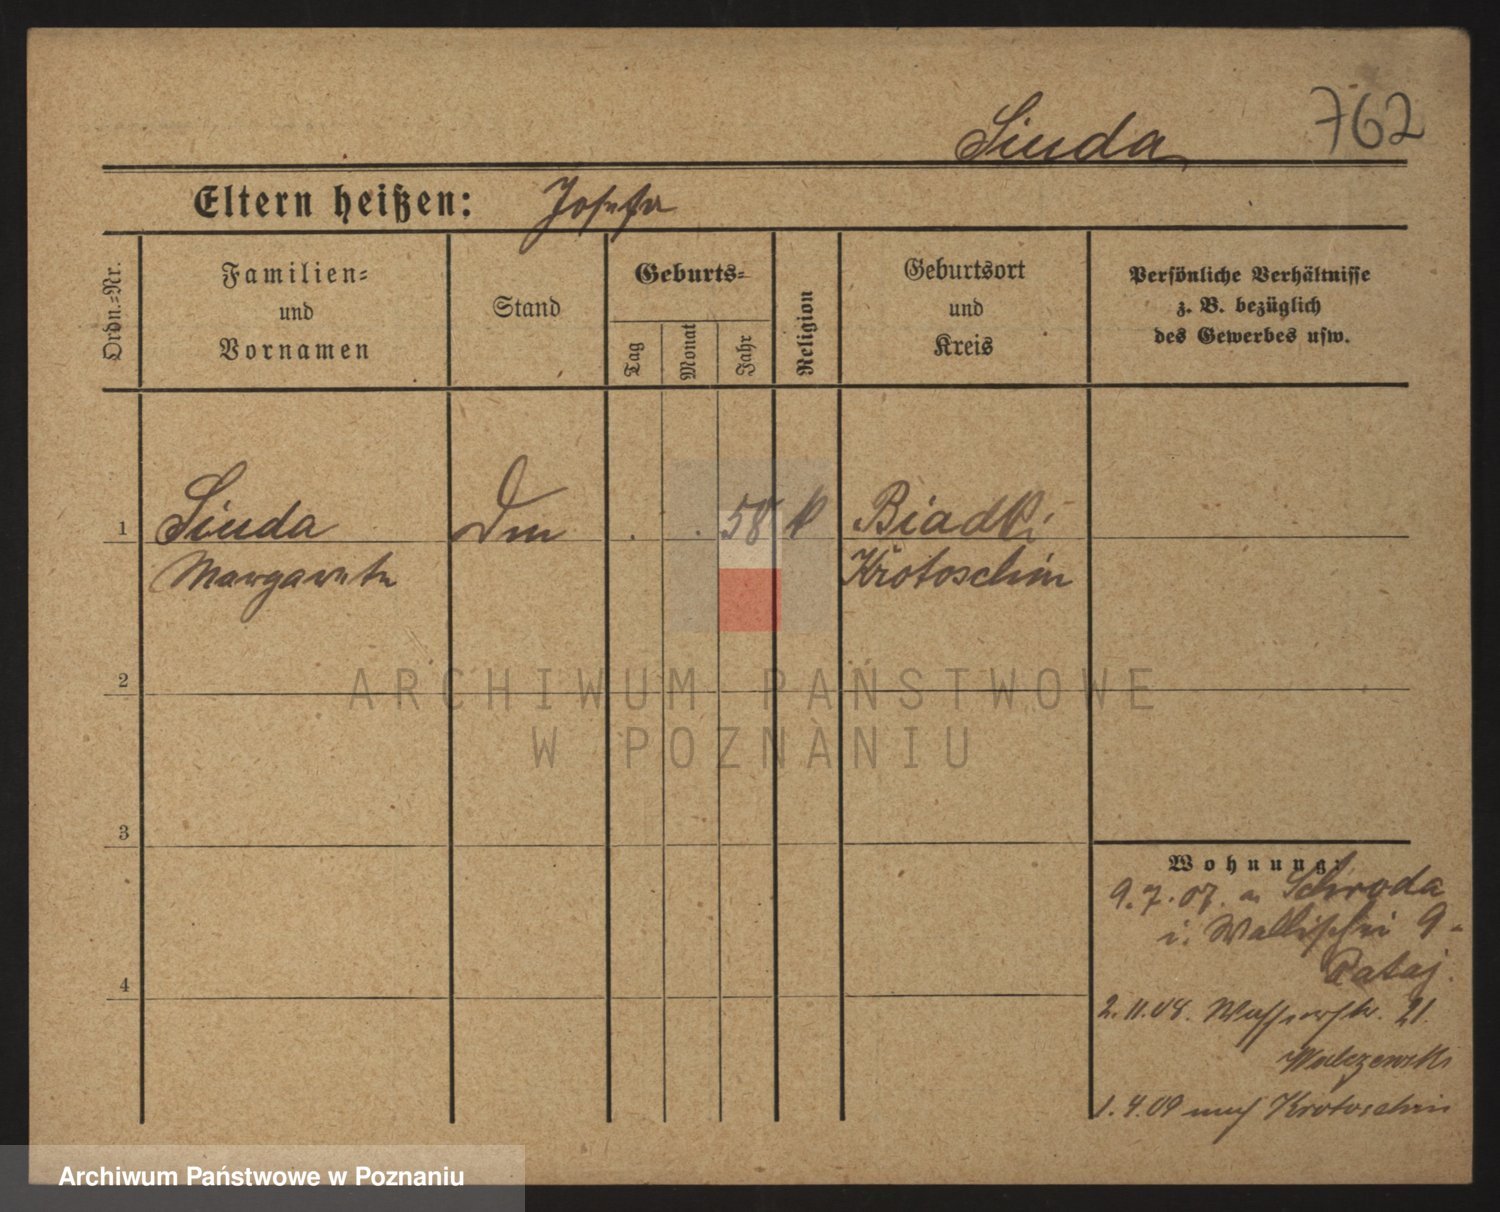 Siuda
762
Eltern heißen: Josefa
Ordn.-Nr.
Familien-
und
Vornamen
Stand
Geburts-
Tag
Monat
Jahr
Religion
Geburtsort
und
Kreis
Persönliche Verhältnisse
z. B. bezüglich
des Gewerbes usw.
1 Siuda . . 58 k Biadki
Margarete Krotoschin
2
3
4
Wohnung:
9.7.07. Schroda
i. Wallischei 9
Rataj.
2.11.08. Wasserstr. 21.
Walczewski
1.4.09 nach Krotoschin
ARCHIWUM PAŃSTWOWE
W POZNANIU
Archiwum Państwowe w Poznaniu